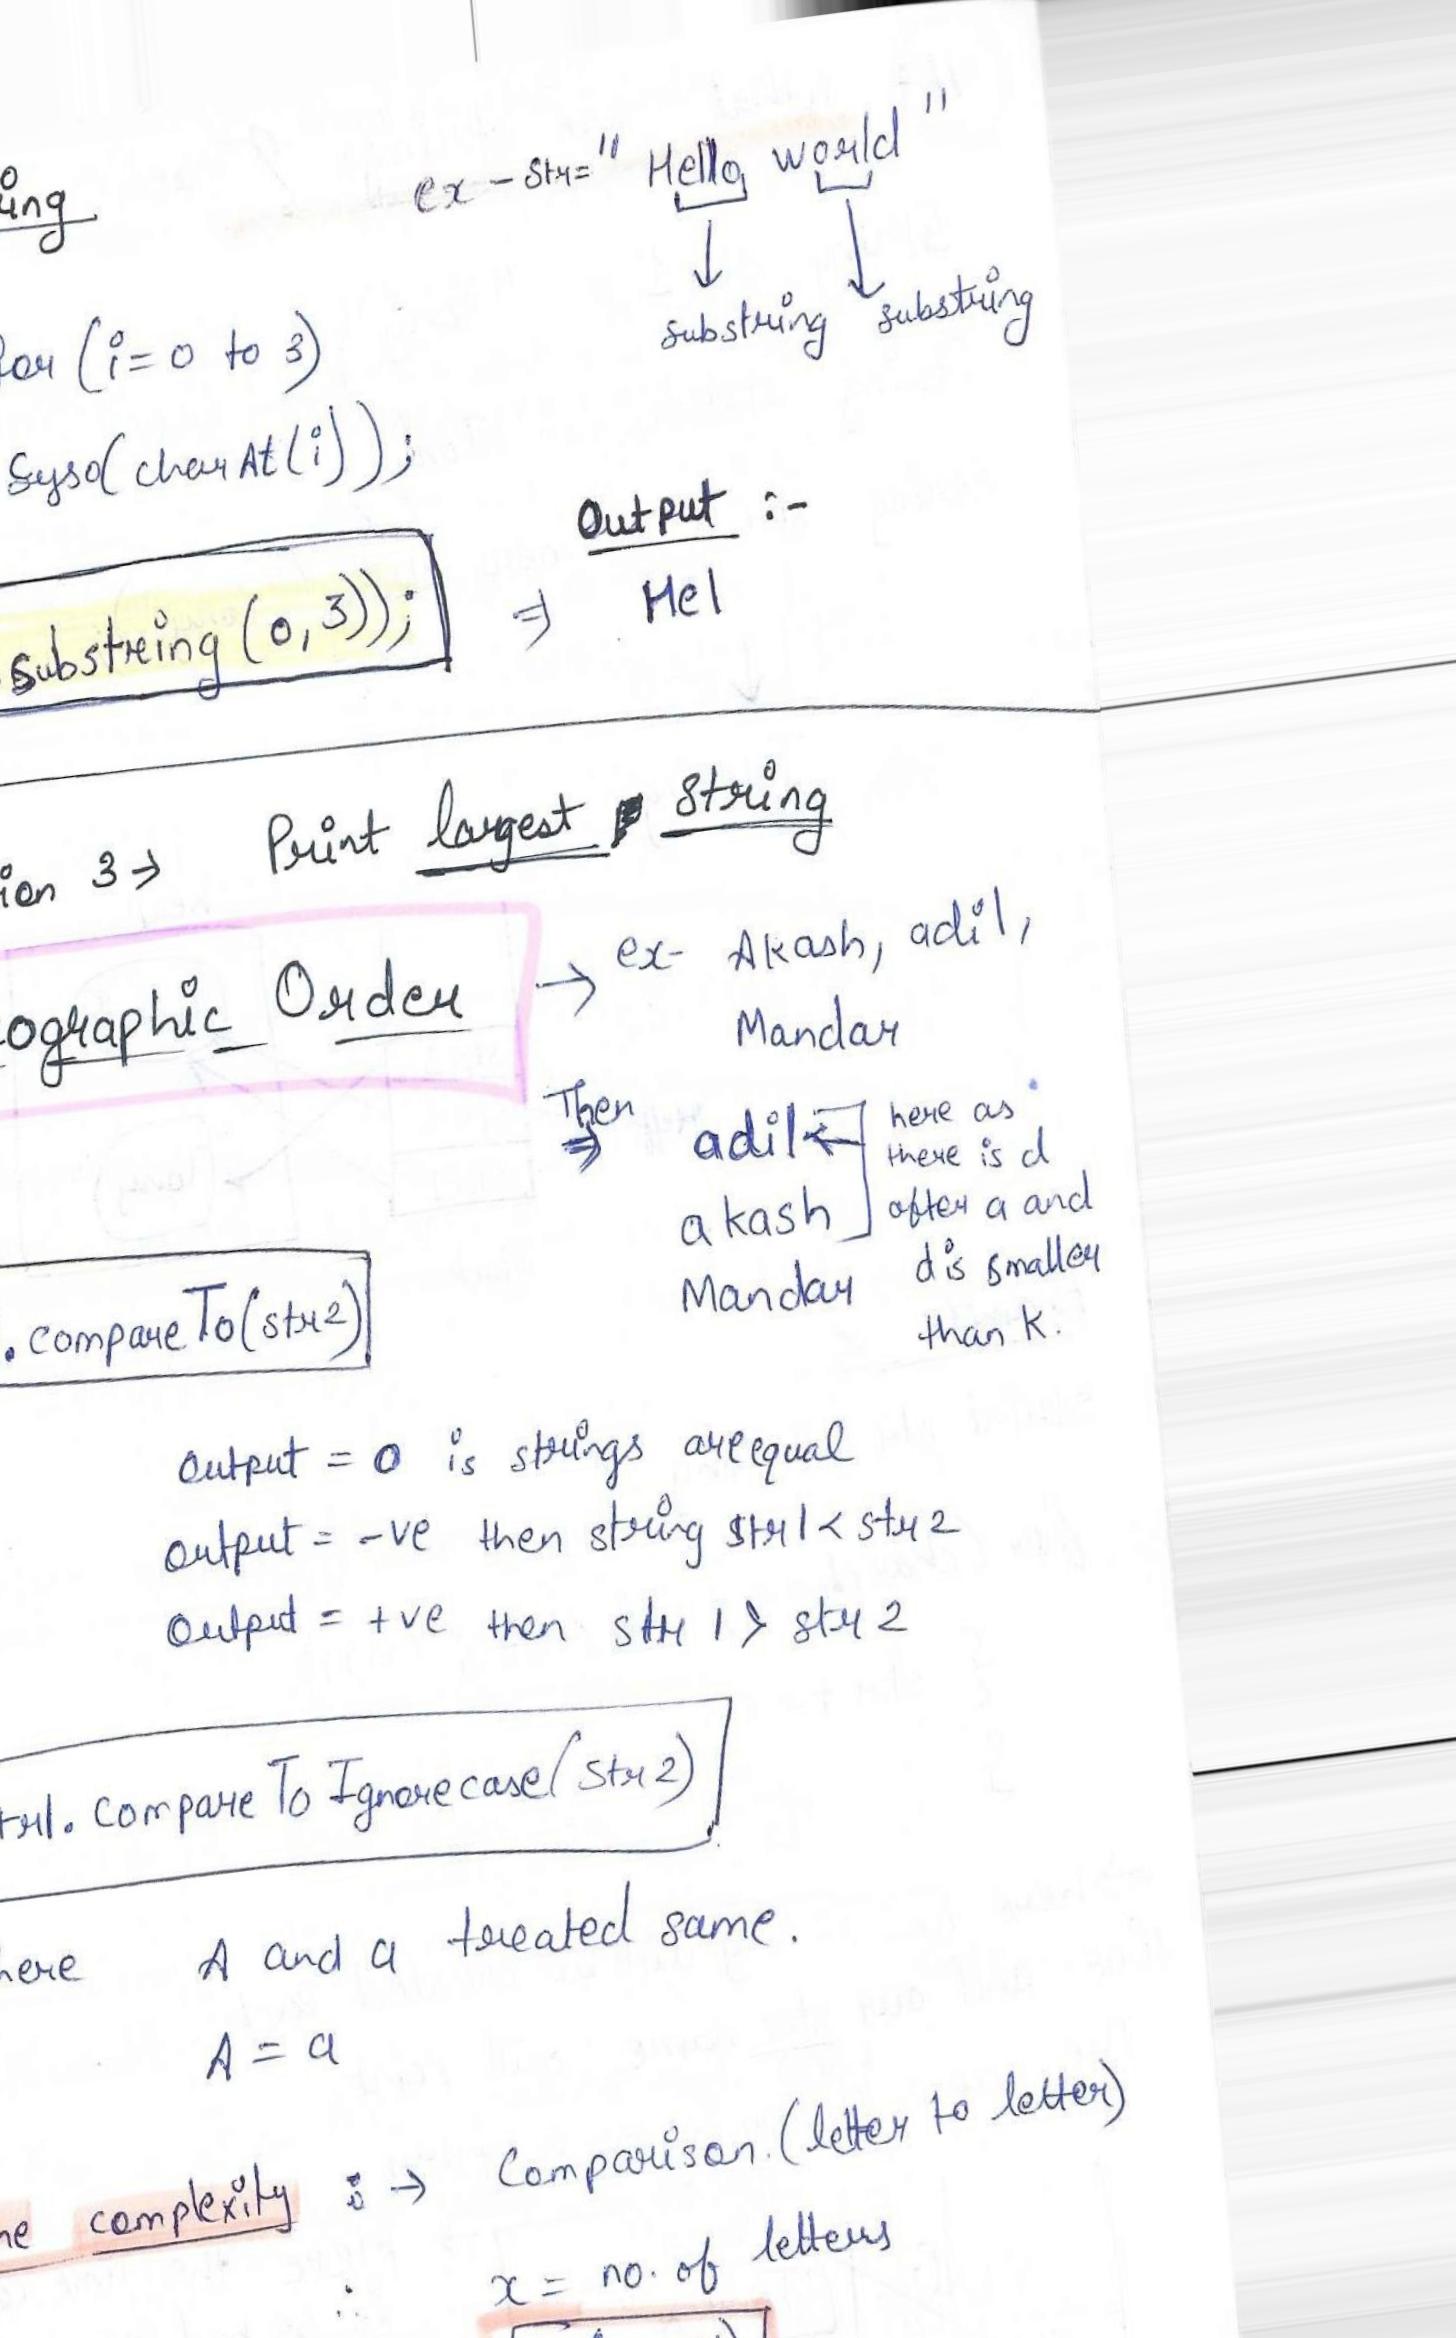 ing
ex - Str = " Hello world "
substring substring
for (i=0 to 3)
Syso(charAt(i));
Output :-
substring (0,3)); ⇒ Hel
ion 3 → Print largest String
ographic Order → ex- Akash, adil,
Mandar
Then
⇒ adil ← here as
there is d
akash after a and
Mandar d is smaller
than K.
. compareTo(str2)
Output = 0 is strings are equal
output = -ve then string str1 < str2
Output = +ve then str 1 > str 2
tr1. compare To Ignorecase(Str2)
here A and a treated same.
A = a
me complexity :→ Comparison. (letter to letter)
∴ x = no. of letters